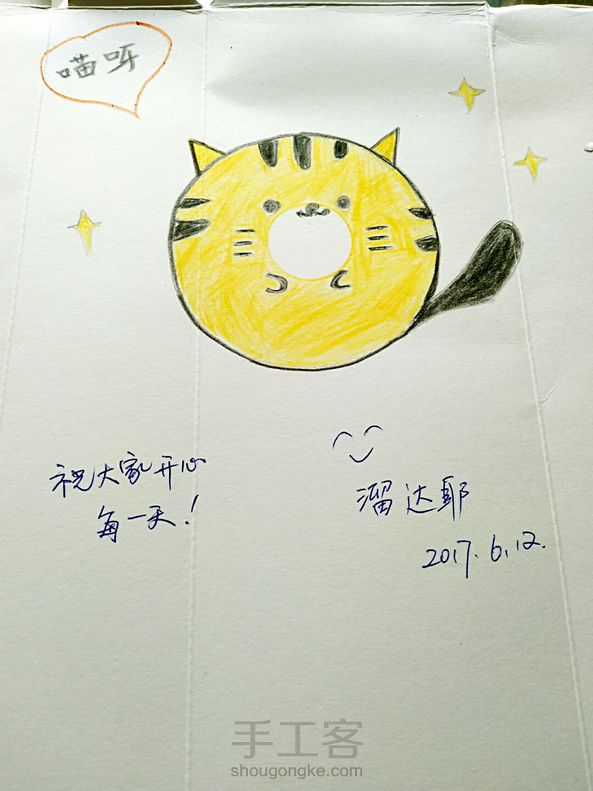 喵呀
祝大家开心
每一天！
溜达耶
2017.6.12.
手工客
shougongke.com